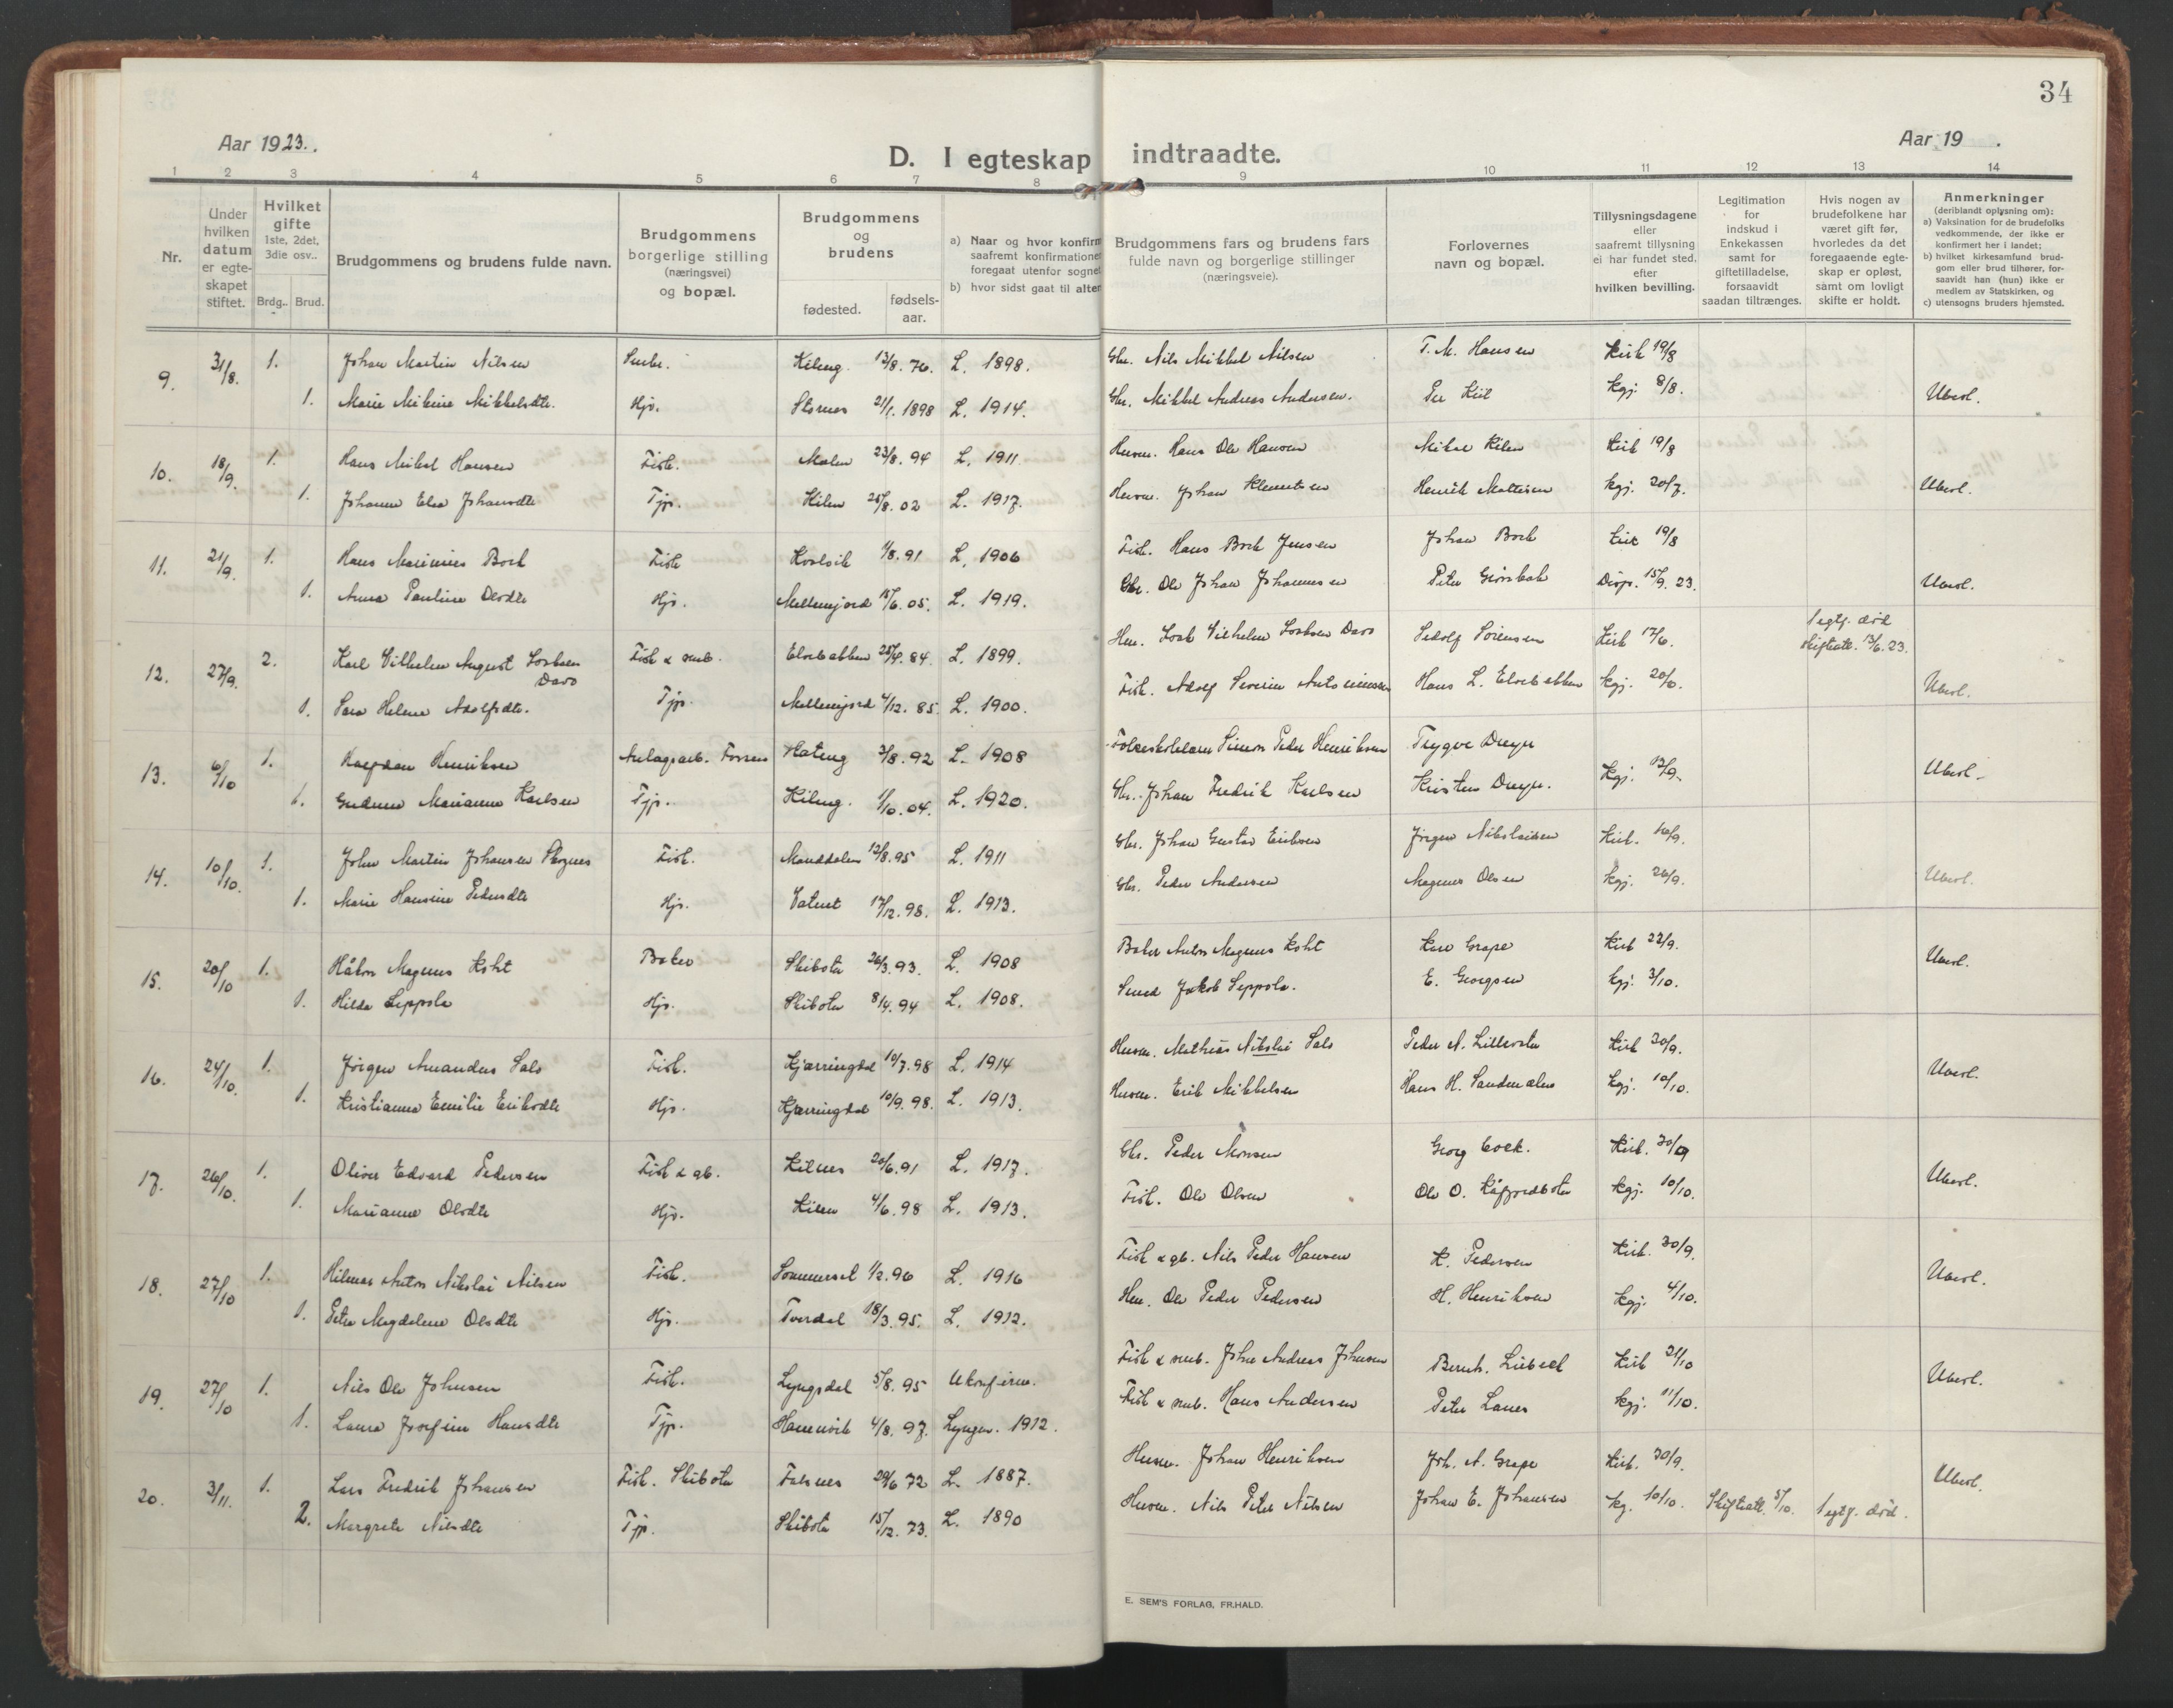 34
Aar 1923.
Aar 19 .
D. I egteskap indtraadte.
1 2 3 4 5 6 7 8 9 10 11 12 13 14
Nr.
Under hvilken datum er egteskapet stiftet.
Hvilket gifte 1ste, 2det, 3die osv..
Brdg.. Brud.
Brudgommens og brudens fulde navn.
Brudgommens borgerlige stilling (næringsvei) og bopæl.
Brudgommens og brudens
fødested. fødselsaar.
a) Naar og hvor konfirm
saafremt konfirmationen
foregaat utenfor sognet
b) hvor sidst gaat til alter
Brudgommens fars og brudens fars fulde navn og borgerlige stillinger (næringsveie).
Forlovernes navn og bopæl.
Tillysningsdagene eller saafremt tillysning ei har fundet sted, efter hvilken bevilling.
Legitimation for indskud i Enkekassen samt for giftetilladelse, forsaavidt saadan tiltrænges.
Hvis nogen av brudefolkene har været gift før, hvorledes da det foregaaende egteskap er opløst, samt om lovligt skifte er holdt.
Anmerkninger
(deriblandt oplysning om):
a) Vaksination for de brudefolks vedkommende, der ikke er konfirmert her i landet;
b) hvilket kirkesamfund brudgom eller brud tilhører, forsaavidt han (hun) ikke er medlem av Statskirken, og
c) utensogns bruders hjemsted.
9. 31/8. 1. Johan Martin Nilsen Smbr. Kileng. 13/8. 76. L. 1898. Gbr. Nils Mikkel Nilsen T. M. Hansen Kirk 19/8
1. Marie Mikine Mikkelsdtr. Hjv. Stornes 21/1. 1898 L. 1914. Gbr. Mikkel Andreas Andersen. Per Kiil kgj. 8/8. Ubesl.
10. 18/9. 1. Hans Mikal Hansen Fisk. Malen 23/8. 94 L. 1911 Husm. Hans Ole Hansen Mikal Kilen Kirk 19/8
1. Johanne Elea Johansdtr Tjp. Kilen 25/8. 02 L. 1917. Husm. Johan Klemetsen Henrik Mattisen kgj. 20/7. Ubesl.
11. 21/9. 1. Hans Marinius Bock Fisk Kvalvik 1/8. 91 L. 1906 Fisk. Hans Bock Jensen Johan Bock Kirk 19/8
1. Anna Pauline Olsdtr Hjv. Mellemjord 15/6. 05. L. 1919. Gbr. Ole Johan Johannesen Peter Grønbak Disp. 15/9. 23. Ubesl.
12. 27/9. 2. Karl Vilhelm August Isaksen Davo Fisk & smb. Elvebakken 25/4. 84. L. 1899. Isak Vilhelm Isaksen Davo Sedolf Sørensen Kirk 17/6. 1 egtf. død Skifteatt. 13/6. 23.
1. Sara Helene Adolfsdtr. Tjp. Mellemjord 4/12. 85. L. 1900. Fisk. Adolf Severin Antonius Hans L. Elvebakken kgj. 20/6. Ubesl.
13. 6/10 1. Halfdan Henriksen Anlagsarb. Kateng 3/8. 92 L. 1908 Folkeskolelærer Simon Peder Henriksen Trygve Dreyer kgj. 12/9. Ubesl.
1. Gudrun Marianne Karlsen Tjp. Kileng. 1/10. 04. L. 1920. Gbr. Johan Fredrik Karlsen Kristen Dreyer.
14. 10/10. 1. John Martin Johansen Skognes Fisk. Manddalen 12/8. 95 L. 1911 Gbr. Johan Gustav Eriksen Jørgen Nikolaisen Kirk. 16/9.
1. Marie Hansine Pedersdtr Hjv. Vatnet 17/12. 98. L. 1913. Gbr. Peder Andersen Magnus Olsen kgj. 26/9. Ubesl.
15. 20/10 1. Håkon Magnus Koht Baker Skibotn 26/3. 93. L. 1908 Baker Anton Magnus Koht Karl Grape Kirk 22/9. Ubesl.
1. Hilda Seppola Hjv. Skibotn 8/4. 94 L. 1908. Smed Jakob Seppola. E. Georgsen kgj. 3/10.
16. 24/10. 1. Jørgen Amandus Salo Fisk. Kjærringdal 10/7. 98 L. 1914 Husm. Mathias Nikolai Salo Peder N. Lillevolle Kirk 30/9. Ubesl.
1. Kristianna Emilie Eriksdtr Hjv. Kjærringdal 10/9. 98. L. 1913. Husm. Erik Mikkelsen Hans H. Sandenalen kgj. 10/10.
17. 26/10. 1. Oliver Edvard Pedersen Fisk & gb. Kilnes 20/6. 91 L. 1917. Gbr. Peder Monsen Georg Cock. Kirk. 30/9 Ubesl.
1. Marianne Olsdtr Hjv. Kilen 4/6. 98 L. 1913. Fisk. Ole Olsen Ole O. Kåfjordbotn kgj. 10/10.
18. 27/10 1. Hilmar Anton Nikolai Nilsen Fisk. Sommersel 1/2. 96 L. 1916 Fisk & gb. Nils Peder Hansen K. Pedersen Kirk. 30/9. Ubesl.
1. Petra Magdalena Olsdtr Hjv. Tverdal 18/3. 95. L. 1912. Husm. Ole Peder Pedersen H. Henriksen kgj. 4/10.
19. 27/10 1. Nils Ole Johnsen Fisk. Lyngsdal 5/8. 95 Ukonfirm. Fisk & smb. John Andreas Johnsen Bernh. Lübeck Kirk 21/10 Ubesl.
1. Laura Josefine Hansdtr Tjp. Hamnvik 4/8. 97. Lyngen. 1912. Fisk & smb. Hans Andersen Peter Lanes kgj. 11/10.
20. 3/11. 1. Lars Fredrik Johansen Fisk. Skibotn Falsnes 29/6 72 L. 1887. Husm. Johan Henriksen Joh. A. Grape Kirk. 30/9. Ubesl.
2. Margrete Nilsdtr Tjp. Skibotn 15/12. 73. L. 1890 Husm. Nils Peter Nilsen Johan E. Johansen kg. 10/10. Skifteatt. 5/10. 1 egtf. død.
E. SEM'S FORLAG, FR.HALD.